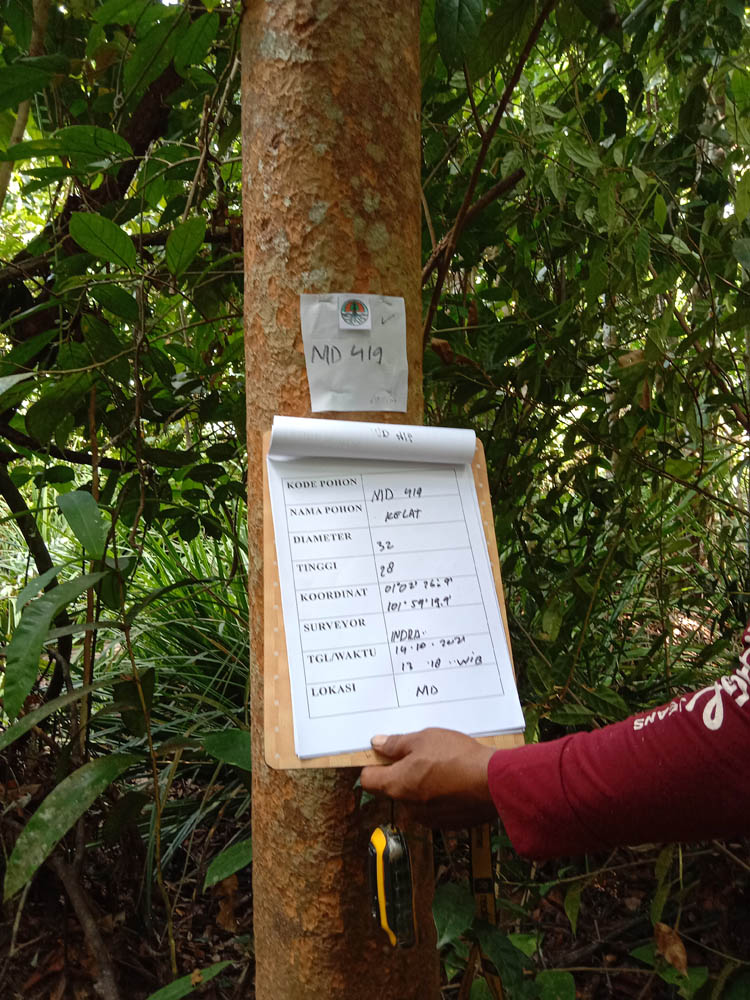 MD 419
MD 419
KODE POHON MD 419
NAMA POHON KELAT
DIAMETER 32
TINGGI 28
KOORDINAT 01°02' 26.9"
101°59' 19.9"
SURVEYOR INDRA.
TGL/WAKTU 14.10.2021
13.18.WIB
LOKASI MD
JEANS